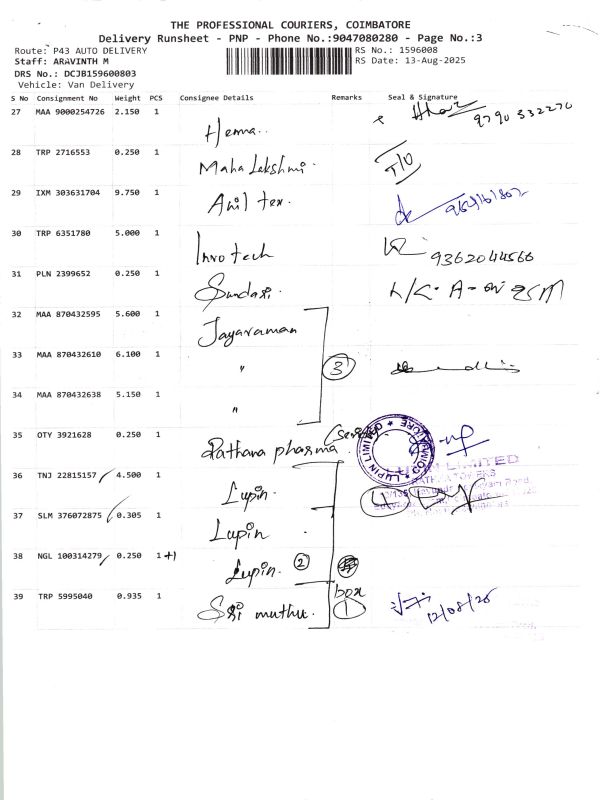 THE PROFESSIONAL COURIERS, COIMBATORE
Delivery Runsheet - PNP - Phone No.:9047080280 - Page No.:3
Route: P43 AUTO DELIVERY
RS No.: 1596008
Staff: ARAVINTH M
RS Date: 13-Aug-2025
DRS No.: DCJB159600803
Vehicle: Van Delivery
S No Consignment No Weight PCS Consignee Details Remarks Seal & Signature
27 MAA 9000254726 2.150 1 Hema.. 9790332270
28 TRP 2716553 0.250 1 Maha Lakshmi.
29 IXM 303631704 9.750 1 Anil tex.
30 TRP 6351780 5.000 1 Inno tech 9362044566
31 PLN 2399652 0.250 1 Sundari.
32 MAA 870432595 5.600 1 Jayaraman
33 MAA 870432610 6.100 1 " 3
34 MAA 870432638 5.150 1 "
35 OTY 3921628 0.250 1 Pathana pharma.
36 TNJ 22815157 4.500 1 Lupin.
37 SLM 376072875 0.305 1 Lupin
38 NGL 100314279 0.250 1+1 Lupin. 2
box
39 TRP 5995040 0.935 1 Sri muthu. 1
LUPIN LIMITED